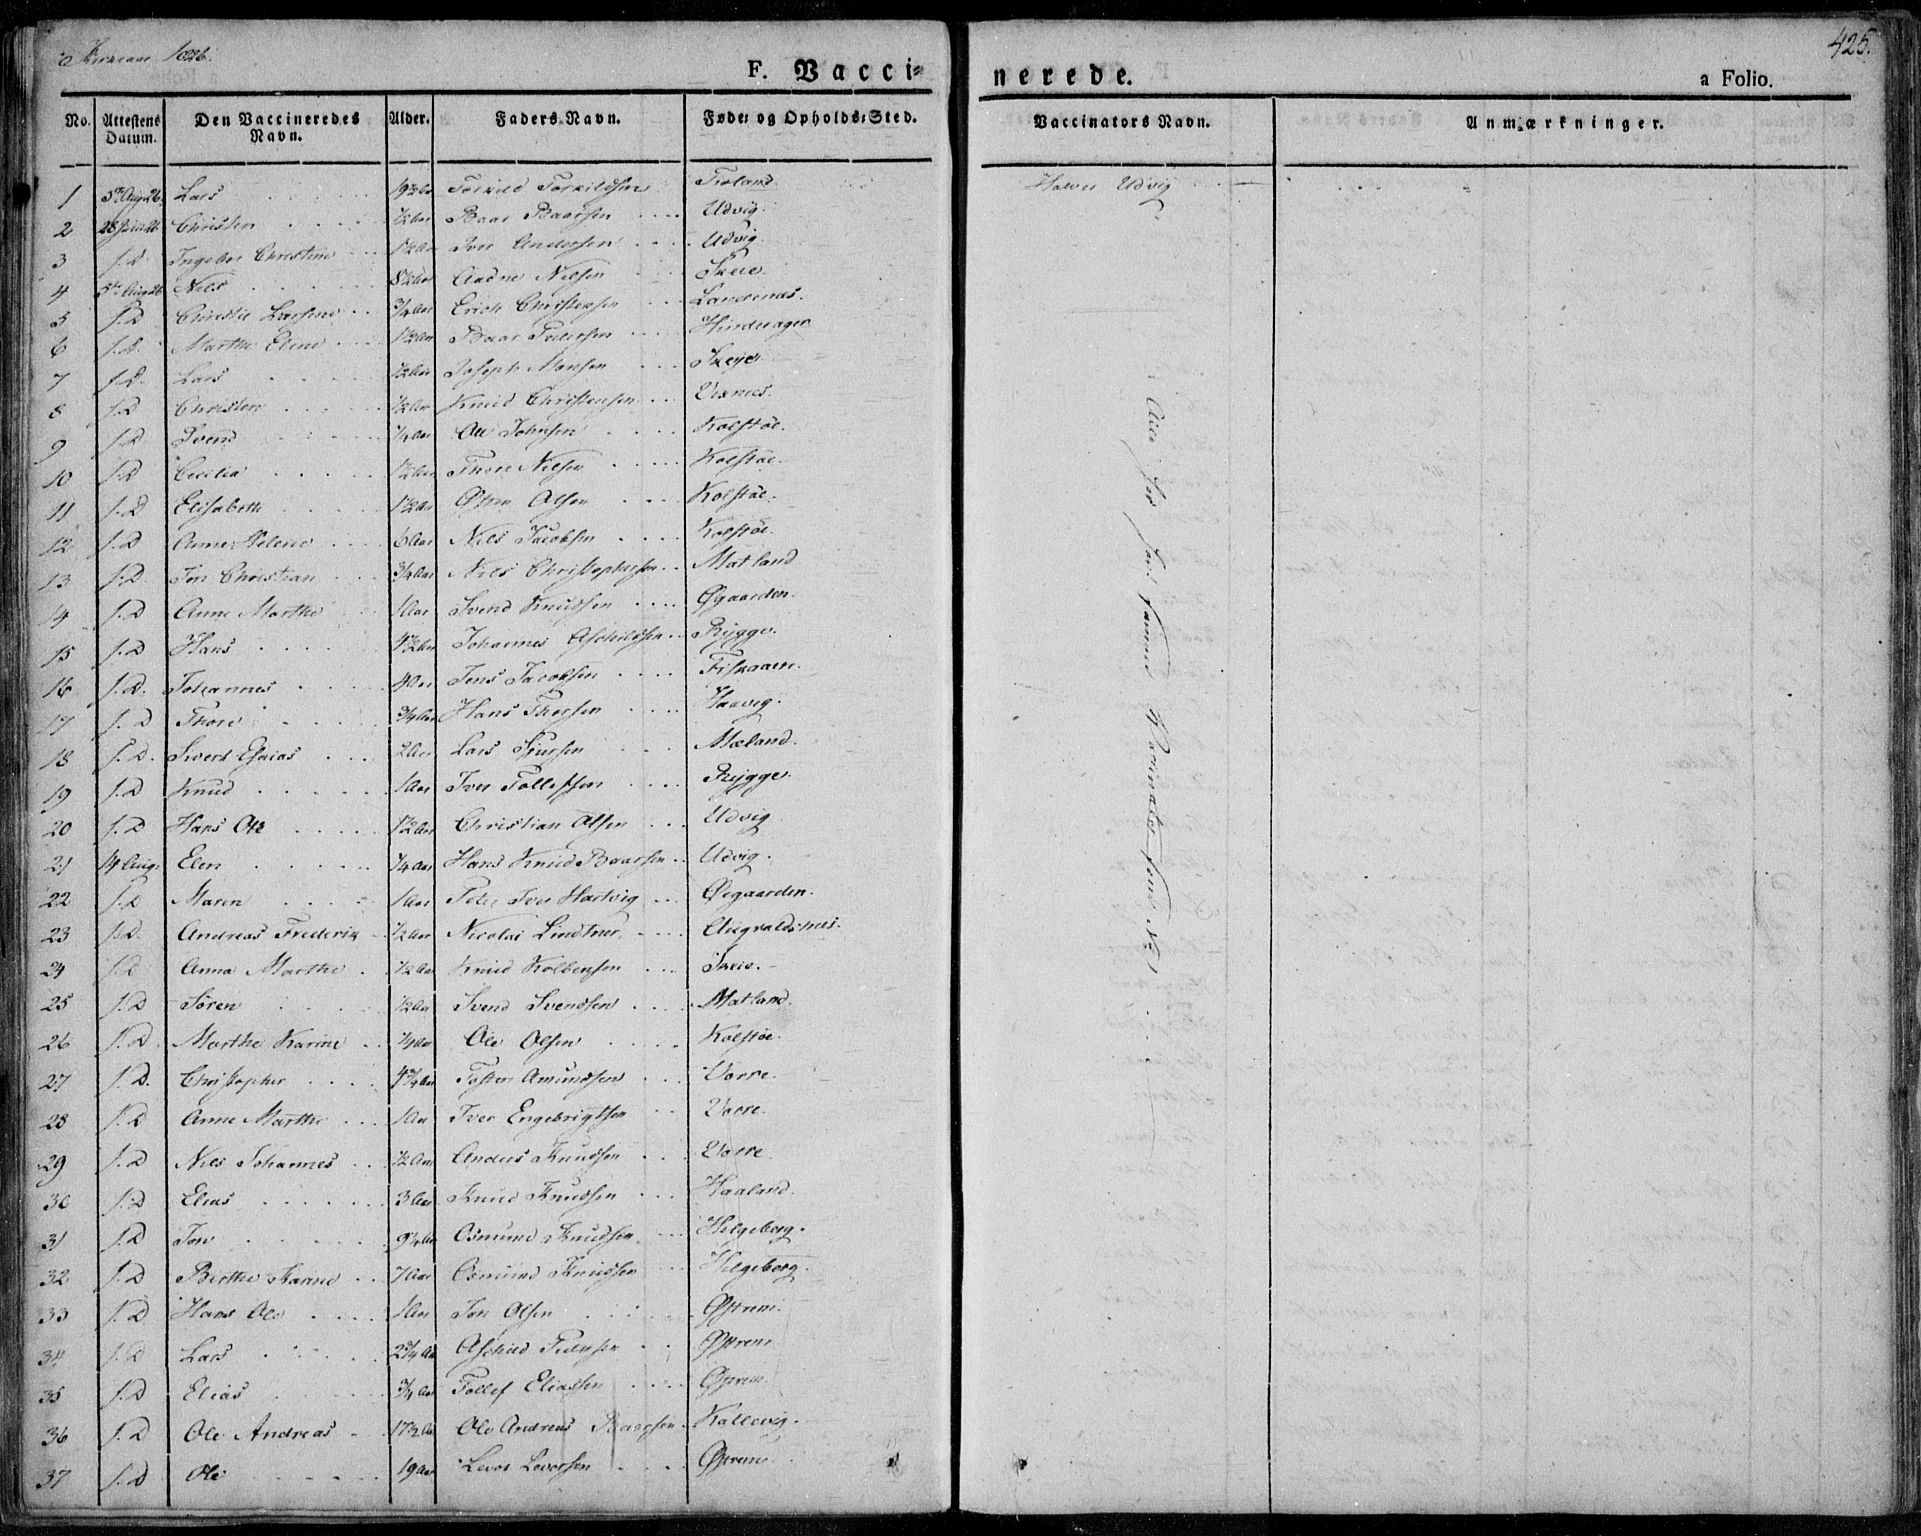 Kirkeaar 1826.
425.
F. Vacci-
nerede.
a Folio.
No. Attestens Datum. Den Vaccineredes Navn. Alder. Faders Navn. Føde- og Opholds-Sted. Vaccinators Navn. Anmærkninger.
1 5te Aug 26. Lars 19½ Aar Torkild Torkildsen Halvor Udvig
2 Christen ½ Aar Baar Baarsen Udvig.
3 s.D Ingebor Christine 1½ Aar Iver Andersen Udvig.
4 5te Aug 26 Nils 8½ Aar Aadne Nilsen Skeie.
5 s.D Christie Larsine ¾ Aar Erich Christensen Landenæs.
6 s.D. Marthe Eline 1½ Aar Baar Pedersen Hinderager
7 s.D. Lars ½ Aar Joseph Monsen Skeje
8 s.D Christen ½ Aar Knud Christensen Visnes.
9 s.D Svend ¼ Aar Ole Johnsen Kolstöe.
10 s.D Cecilia 1½ Aar Thore Nilsen Kolstöe.
11 s.D Elisabeth 1½ Aar Olsen Kolstöe.
12 s.D Anne Helene 6 Aar Nils Jacobsen Kolstöe.
13 s.D. Jon Christian ¾ Aar Nils Christophersen Matland
14 s.D Anne Marthe 1 Aar Svend Knudsen Øgaarden.
15 s.D Hans 4½ Aar Johannes Aschildsen Rygge.
16 s.D. Johannes 4 Aar Jens Jacobsen Fiskaaen.
17 s.D Thore ¾ Aar Hans Thorsen Haavig.
18 s.D. Sivert Esaias 2 Aar Lars Mæland.
19 s.D Knud 1 Aar Iver Tollefsen Rygge.
20 s.D Hans Ole 1½ Aar Christian Olsen Udvig
21 14 Aug. Elen ¼ Aar Hans Knud Baarsen Udvig.
22 s.D Maren 1 Aar Peder Iver Hartvig Øegaarden.
23 s.D. Andreas Frederik ½ Aar Nicolai Lindtner Augvaldsnæs.
24 s.D Anna Marthe ½ Aar Knud Kolbensen Skeie.
25 s.D Sören ½ Aar Svend Svendsen Matland.
26 s.D. Marthe Karine ¼ Aar Ole Olsen Kolstöe.
27 s.D. Christopher 4¾ Aar Tosten Amundsen Vorre.
28 s.D Anne Marthe 1 Aar Iver Engebrigtsen Vorre.
29 s.D Nils Johannes ½ Aar Anders Knudsen Vorre.
30 s.D Elias 3 Aar Knud Knudsen Haaland.
31 s.D Jon 9¼ Aar Osmund Knudsen Helgeborg.
32 s.D Berthe Karine 7 Aar Osmund Knudsen Helgeborg.
33 s.D Hans Ole 1 Aar Jon Olsen Østrem.
34 s.D Lars 2¾ Aar Aschild Østrem
35 s.D Elias ¾ Aar Tollef Eliassen Østrem.
36 s.D Ole Andreas 17½ Aar Ole Andreas Baarsen Kallevig.
37 s.D Ole 19 Aar Levor Levorsen Østrem